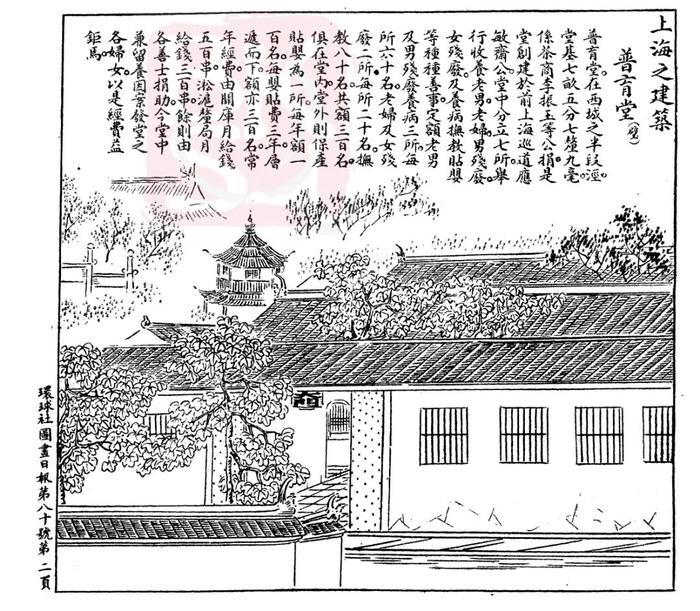 上海之建築
普育堂
普育堂。在西城之半段涇。
堂基七畝五分七釐九毫
係茶商李振玉等公捐是
堂創建於前上海巡道應
敏齋公堂中分立七所。舉
行收養老男。老婦。男殘廢。
女殘廢。及養病撫教貼嬰
等種種善事。定額老男
及男殘廢養病三所。每
所六十名。老婦及女殘
廢二所。每所二十名。撫
教八十名。共額三百名。
俱在堂內。堂外則保產
貼嬰為一所。每年額一
百名。每嬰貼費三年。層
遞而下。額亦三百名。常
年經費。由關庫月給錢
五百串。淞滬釐局月
給錢三百串。餘則由
各善士捐助。今堂中
兼留養因案發堂之
各婦女。以是經費益
鉅焉。
環球社圖畫日報第八十號第二頁